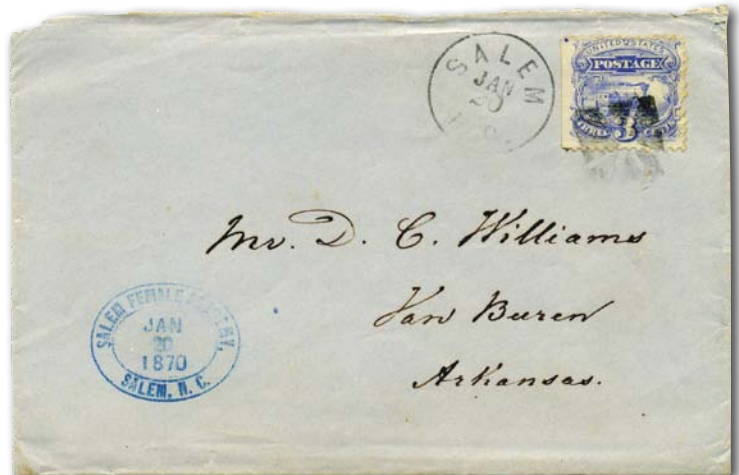 SALEM
JAN
20
N.C.
UNITED STATES
POSTAGE
THREE 3 CENTS
Mr. D. C. Williams
Van Buren
Arkansas.
SALEM FEMALE ACADEMY,
JAN
20
1870
SALEM, N. C.